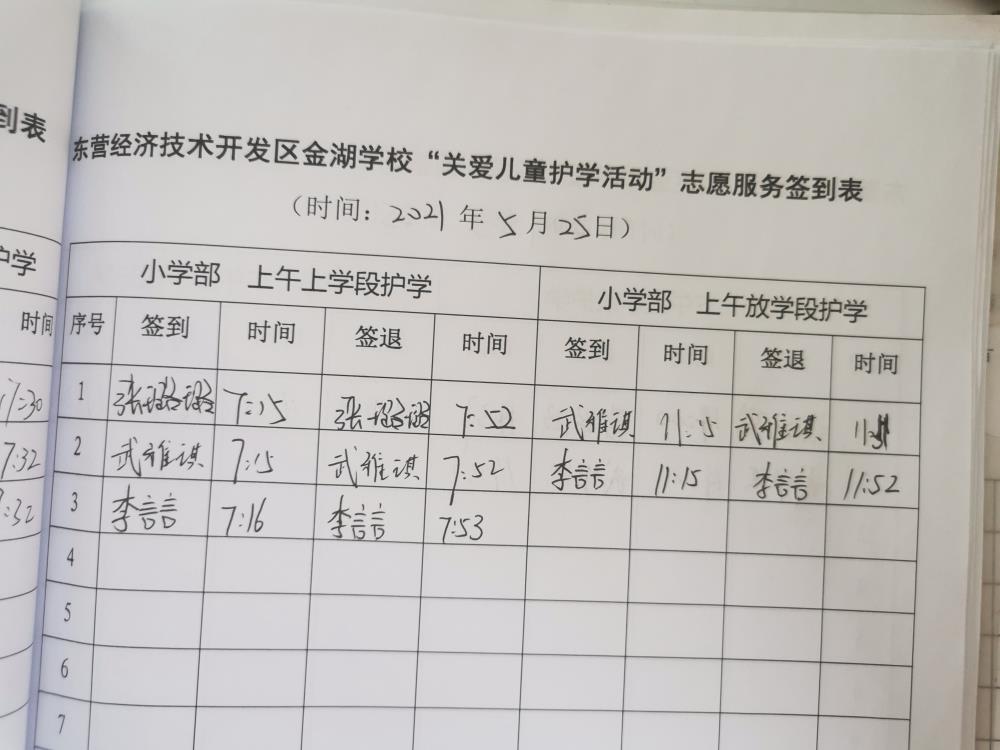 到表
东营经济技术开发区金湖学校“关爱儿童护学活动”志愿服务签到表
(时间：2021年5月25日)
护学
小学部 上午上学段护学 小学部 上午放学段护学
时间
序号 签到 时间 签退 时间 签到 时间 签退 时间
17:30
1 张璐璐 7:15 张璐璐 7:52 武雅琪 11:15 武雅琪
7:32
2 武雅琪 7:15 武雅琪 7:52 李言言 11:15 李言言 11:52
:32
3 李言言 7:16 李言言 7:53
4
5
6
7